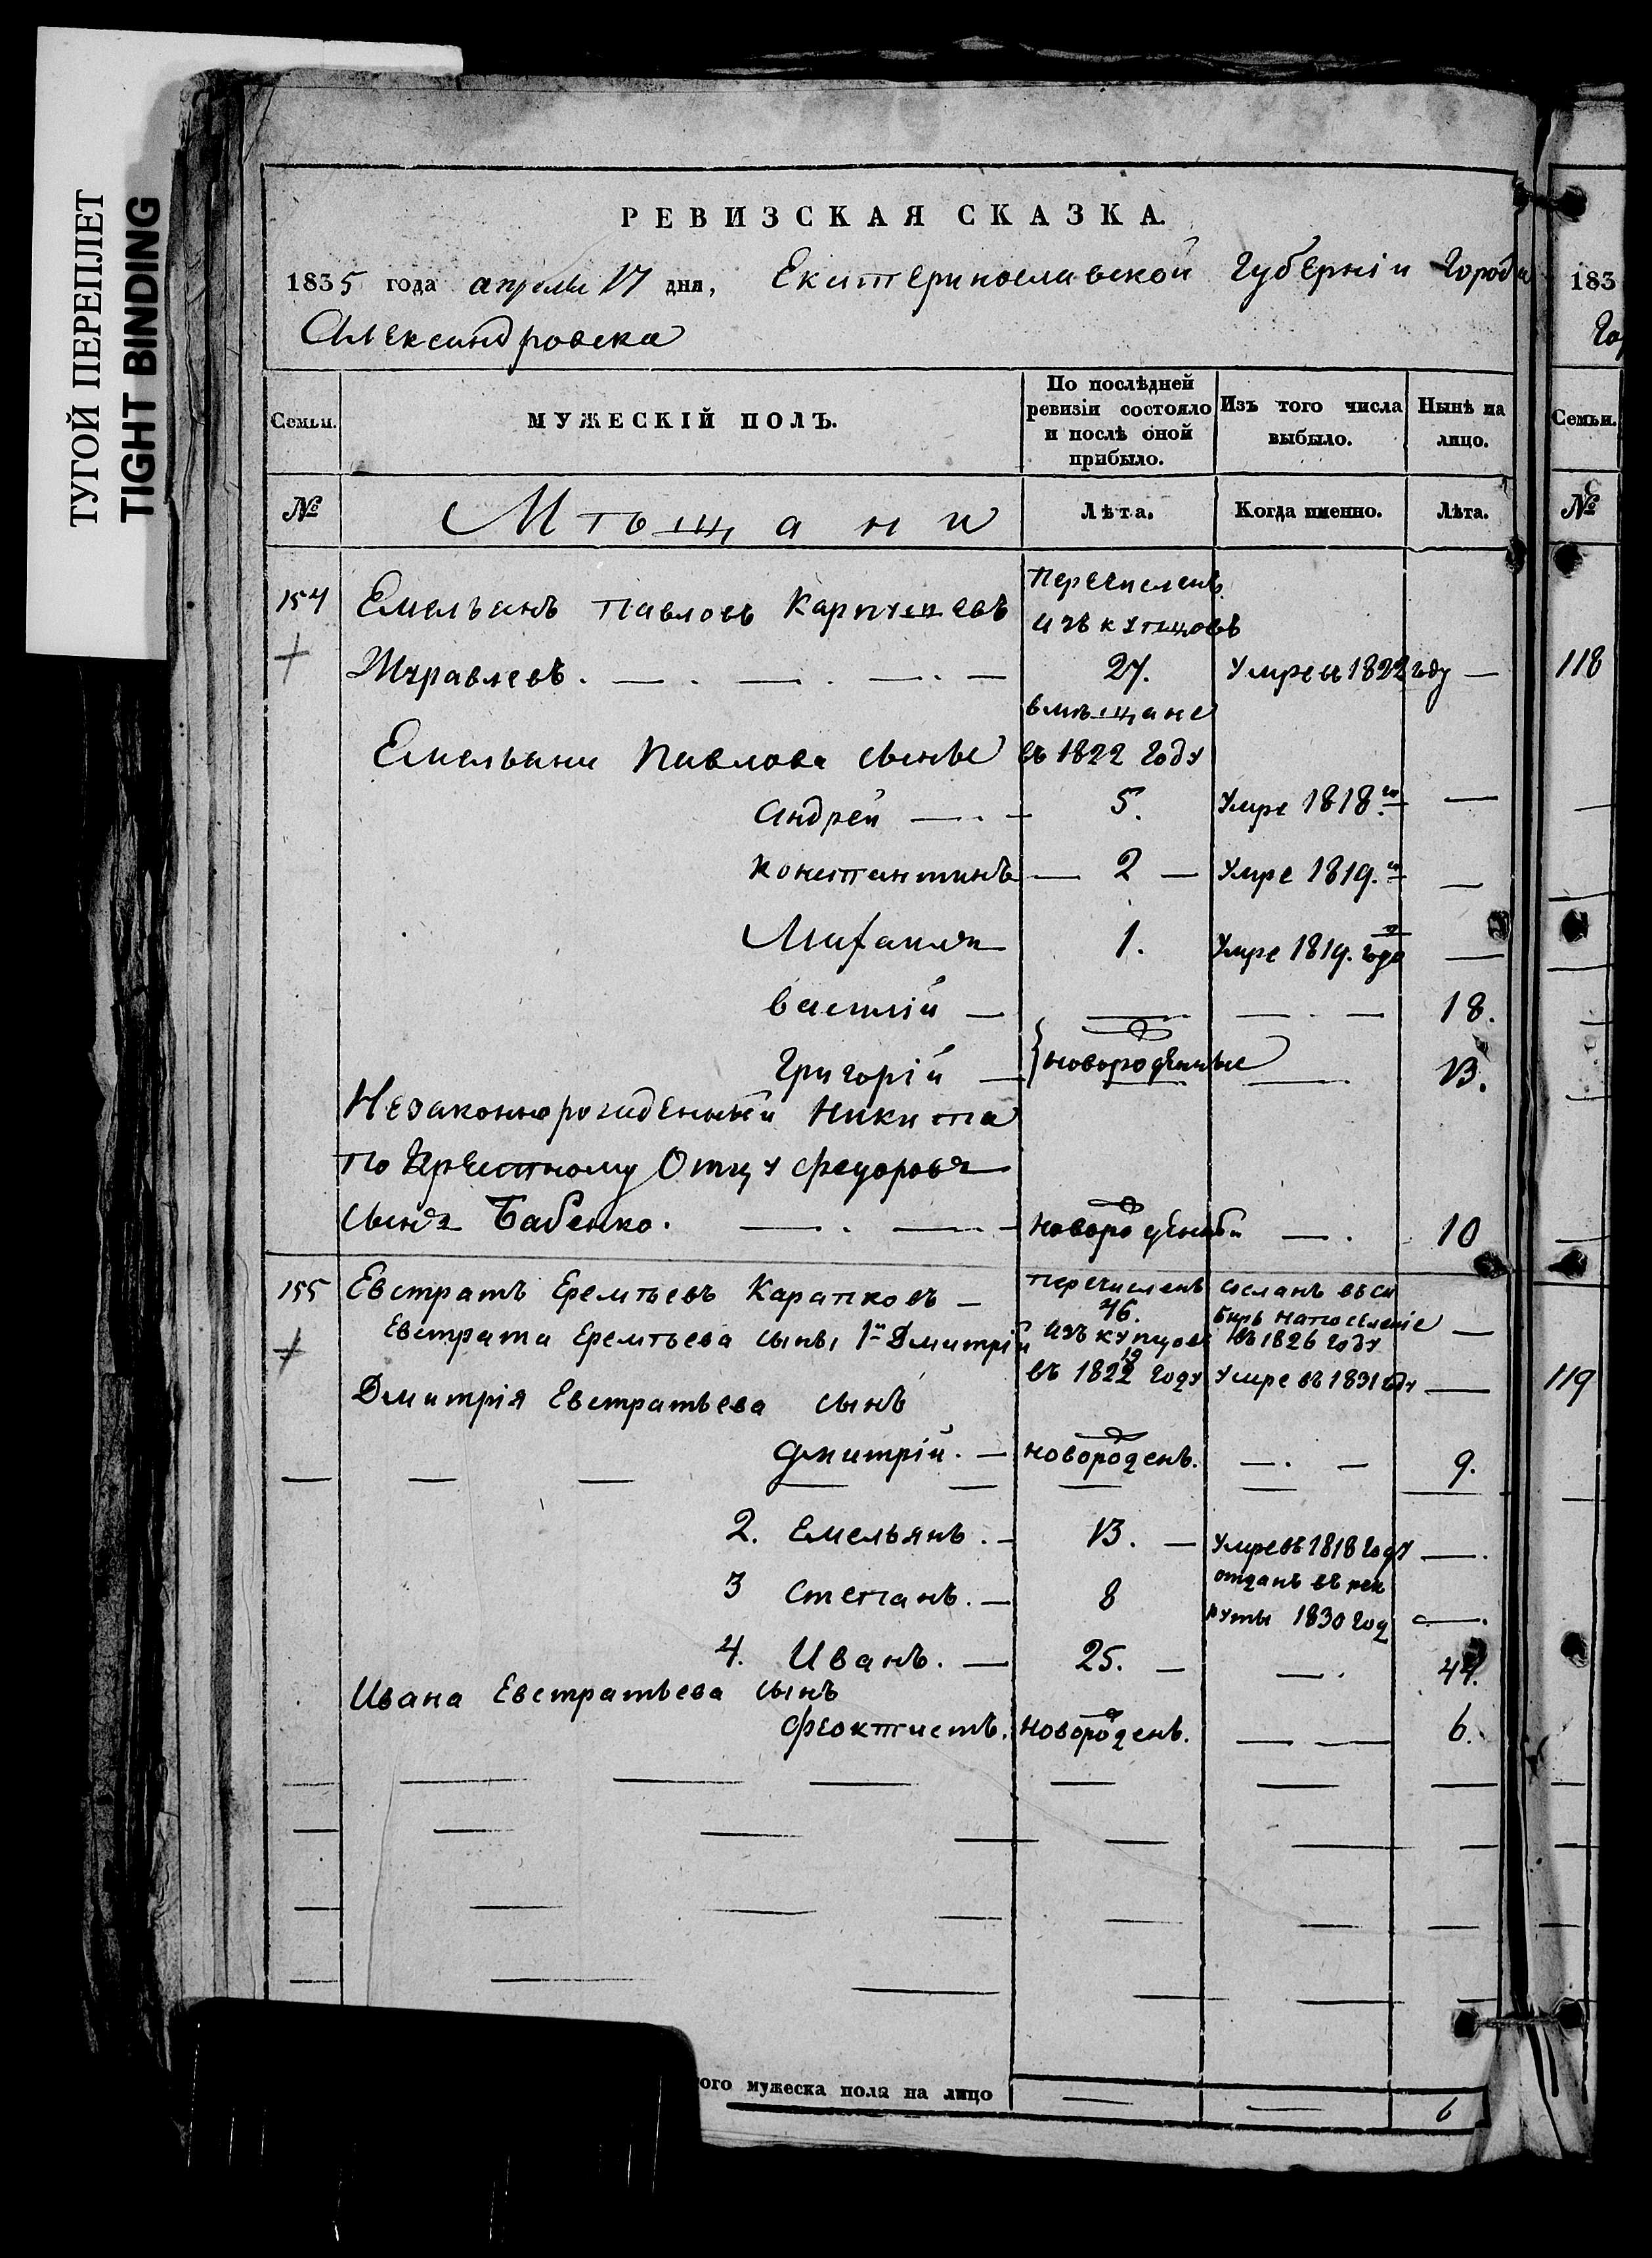 ТУГОЙ ПЕРЕПЛЕТ
TIGHT BINDING
РЕВИЗСКАЯ СКАЗКА.
1835 года апреля 17 дня, Екатеринославской Губерніи Города
Александровска
Семьи. МУЖЕСКІЙ ПОЛЪ. По послѣдней ревизіи состояло и послѣ оной прибыло. Изъ того числа выбыло. Нынѣ на лицо.
№ Мѣщани Лѣта. Когда именно. Лѣта.
154 Емельянъ Павловъ Перечисленъ изъ купцовъ
Журавлевъ. 27. Умре въ 1822 году
вмѣщане
Емельяна Павлова сынъе въ 1822 году
Андрей 5. Умре 1818.го
Константинъ 2 Умре 1819.го
Михаилъ 1. Умре 1819. года
Василій 18.
Григорій } новорожденные 13.
Незаконнорожденный Никита
по Крестному Отцу Федоровъ
сынъ Бабенко. новорожденный 10
155 Евстратъ Еремѣевъ Карапковъ перечисленъ 46. Сосланъ въ Си
бирь на поселеніе
Евстрата Еремѣева сынъ 1й Дмитрій изъ купцовъ въ 1826 году
19
въ 1822 году Умре въ 1831 году
Дмитрія Евстратьева сынъ
Дмитрій. новороденъ. 9.
2. Емельянъ. 13. Умре въ 1818 году
3 Степанъ. 8 отданъ въ рек
руты 1830 год
4. Иванъ. 25. 44.
Ивана Евстратьева сынъ
Феоктистъ. новороденъ. 6.
ого мужеска пола на лицо 6
183
Го
Семьи.
№
118
119